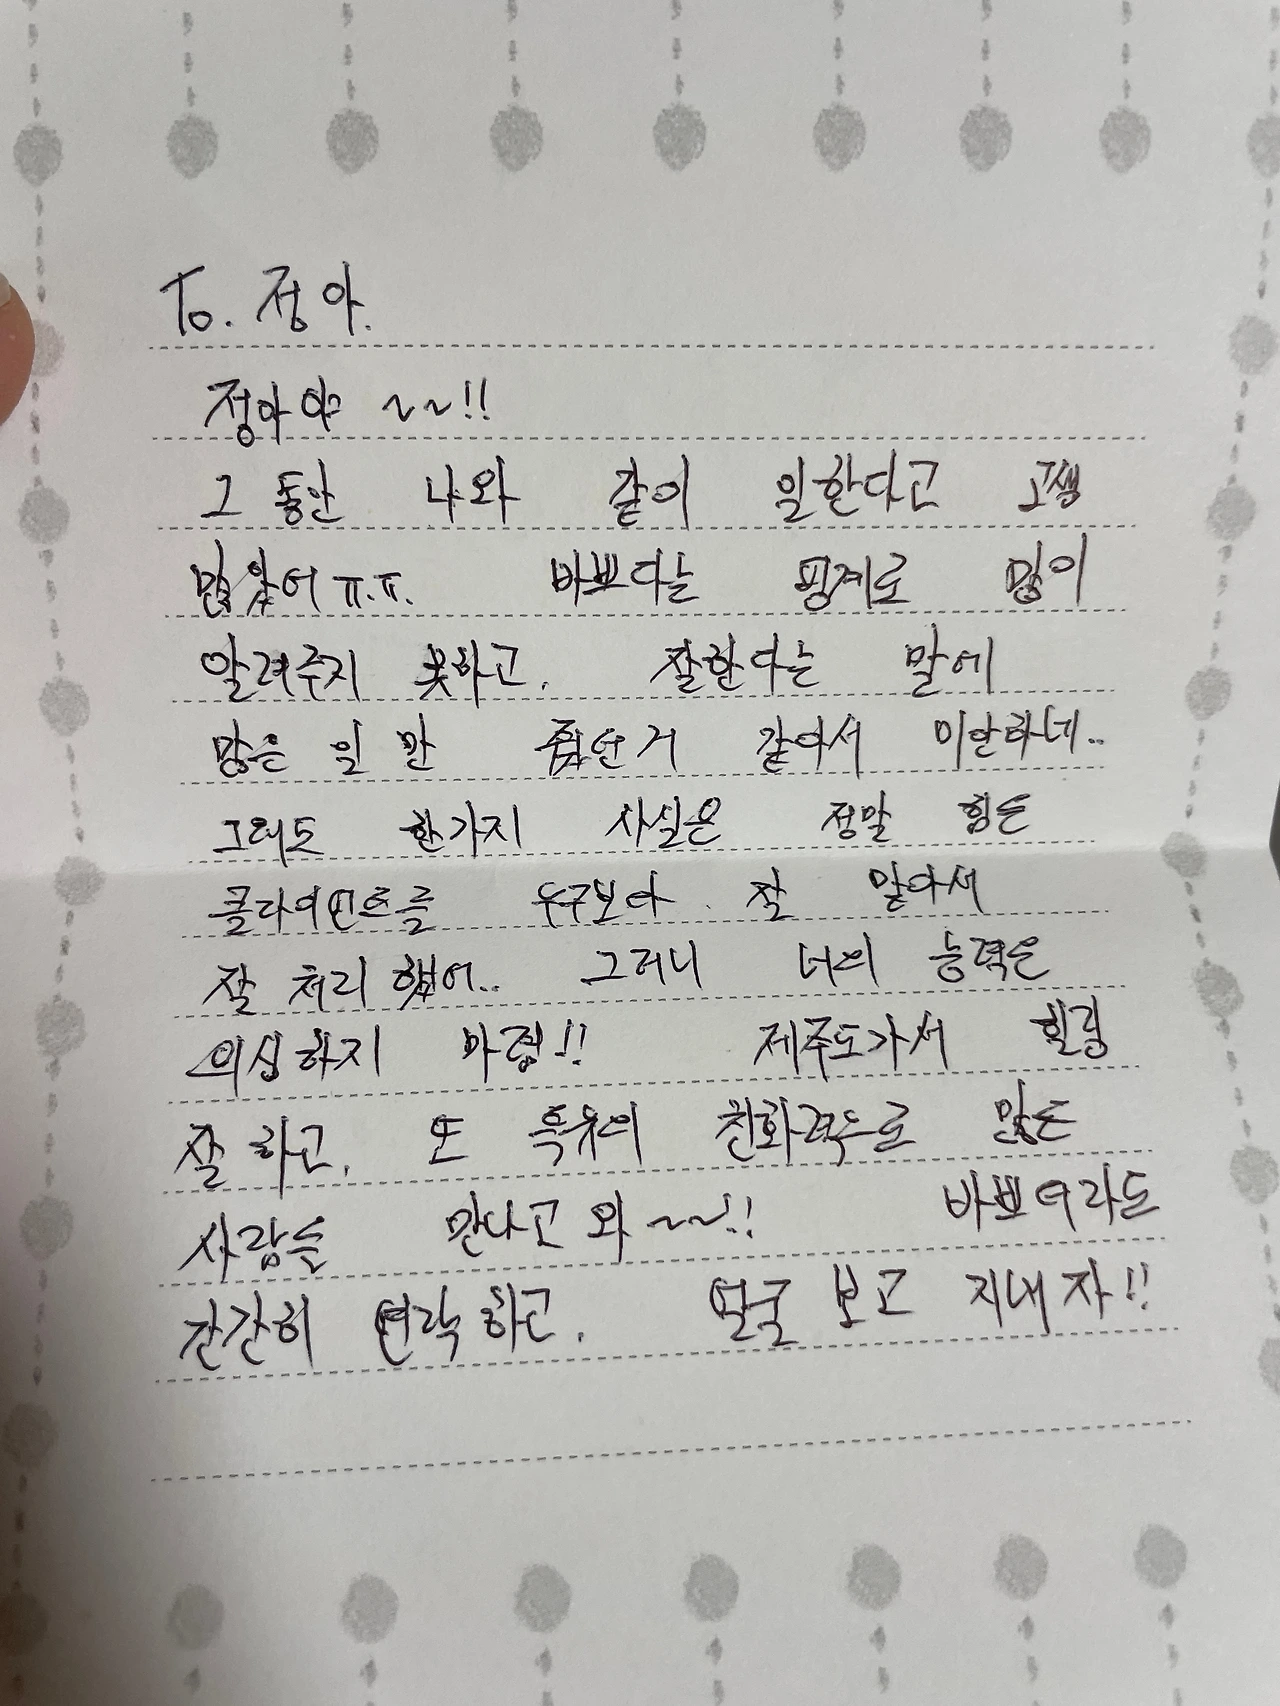 To. 정아.
정아야 ~~!!
그 동안 나와 같이 일한다고 고생
많았어ㅠ.ㅠ. 바쁘다는 핑계로 많이
알려주지 못하고, 잘한다는 말에
많은 일만 줬던거 같아서 미안하네..
그래도 한가지 사실은 정말 힘든
클라이언트를 누구보다 잘 맡아서
잘 처리했어.. 그러니 너의 능력은
의심하지 마렴!! 제주도가서 힐링
잘하고, 또 특유의 친화력으로 많은
사람들 만나고 와~~!! 바쁘더라도
간간히 연락하고, 얼굴 보고 지내자!!